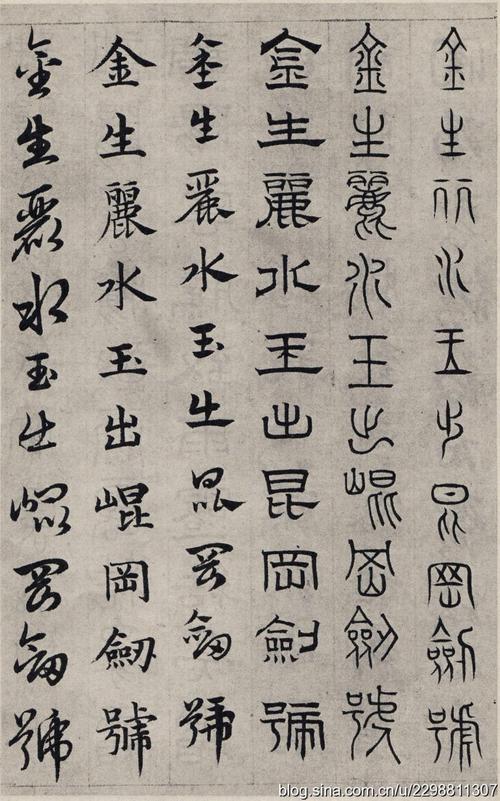 金生丽水玉出昆岡劍號
金生麗水玉出崐岡劒號
金生麗水玉出昆岡劍號
金生麗水玉出昆岡劒號
金生麗水玉出崐岡劒號
金生麗水玉出崐岡劒號
blog.sina.com.cn/u/2298811307